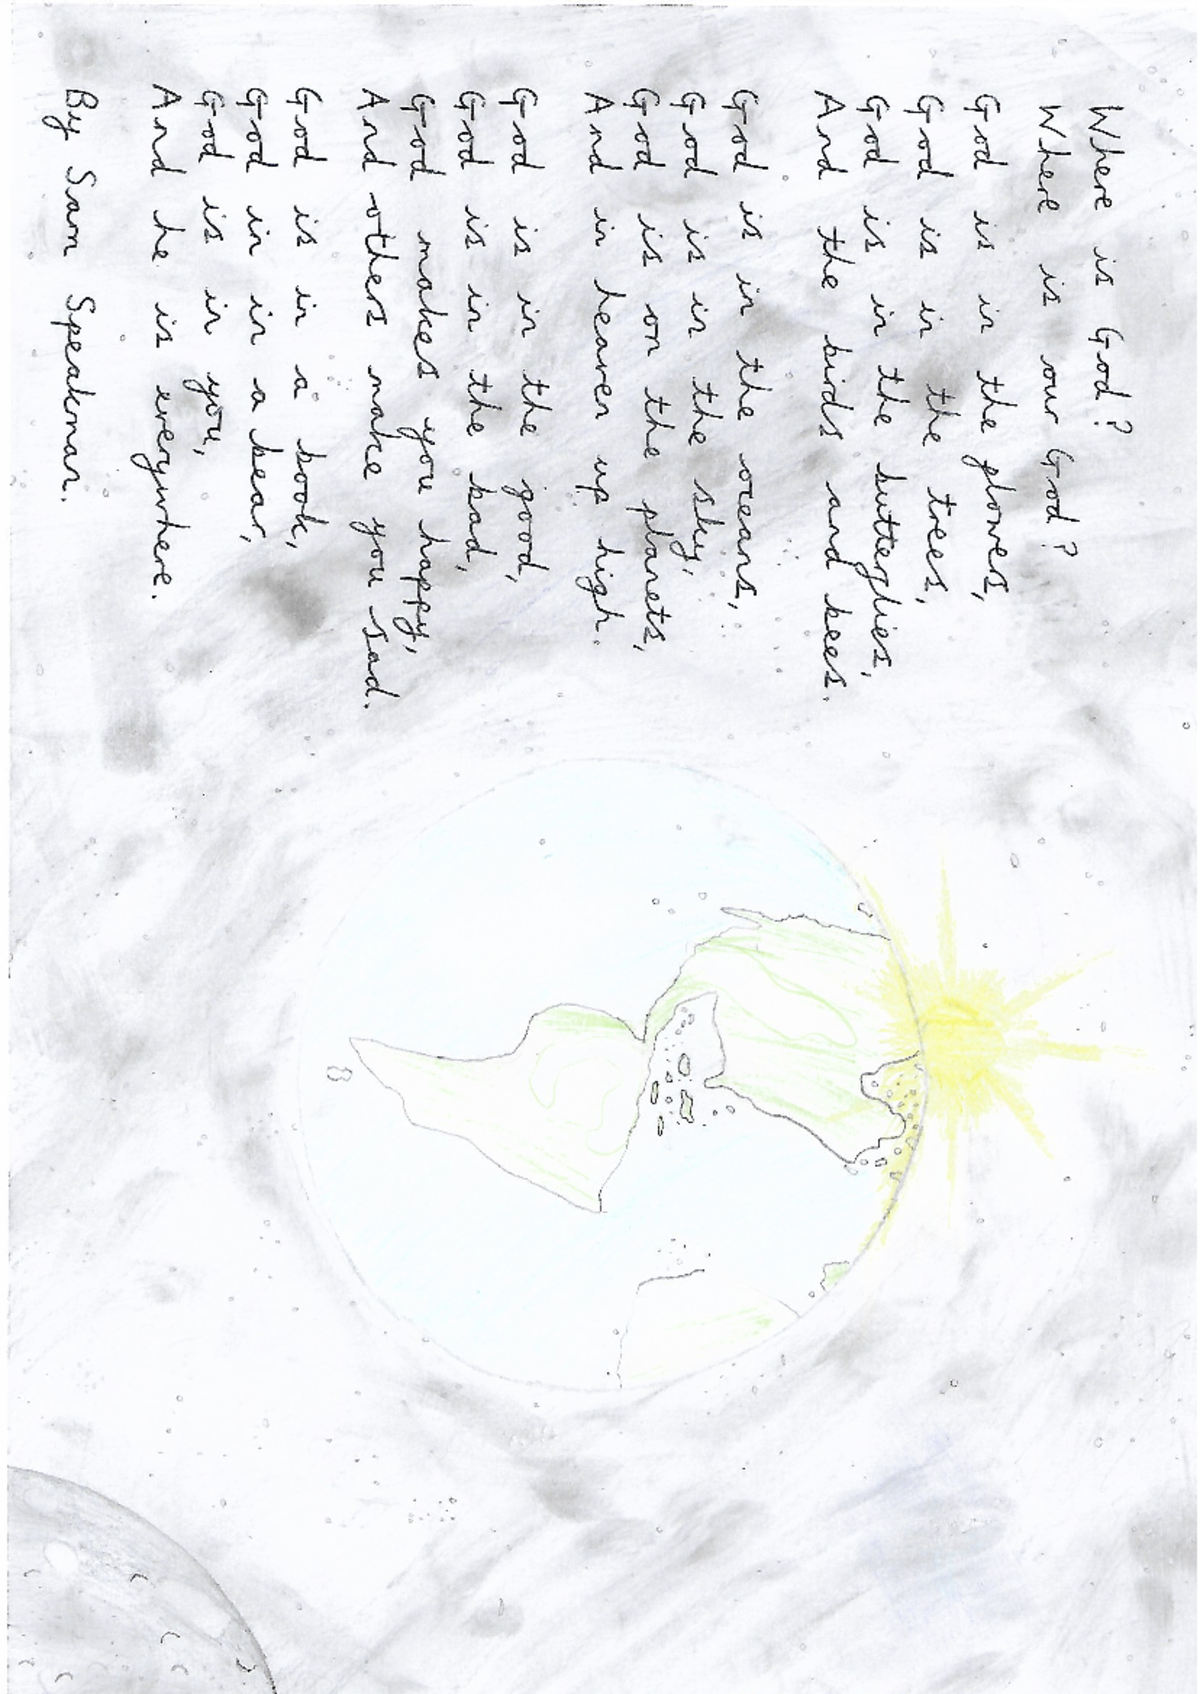 Where is God?
Where is our God?
God is in the flowers,
God is in the trees,
God is in the butterflies,
And the birds and bees.
God is in the oceans,
God is in the sky,
God is on the planets,
And in heaven up high.
God is in the good,
God is in the bad,
God makes you happy,
And others make you sad.
God is in a book,
God in in a bear,
God is in you,
And he is everywhere.
By Sam Speakman.